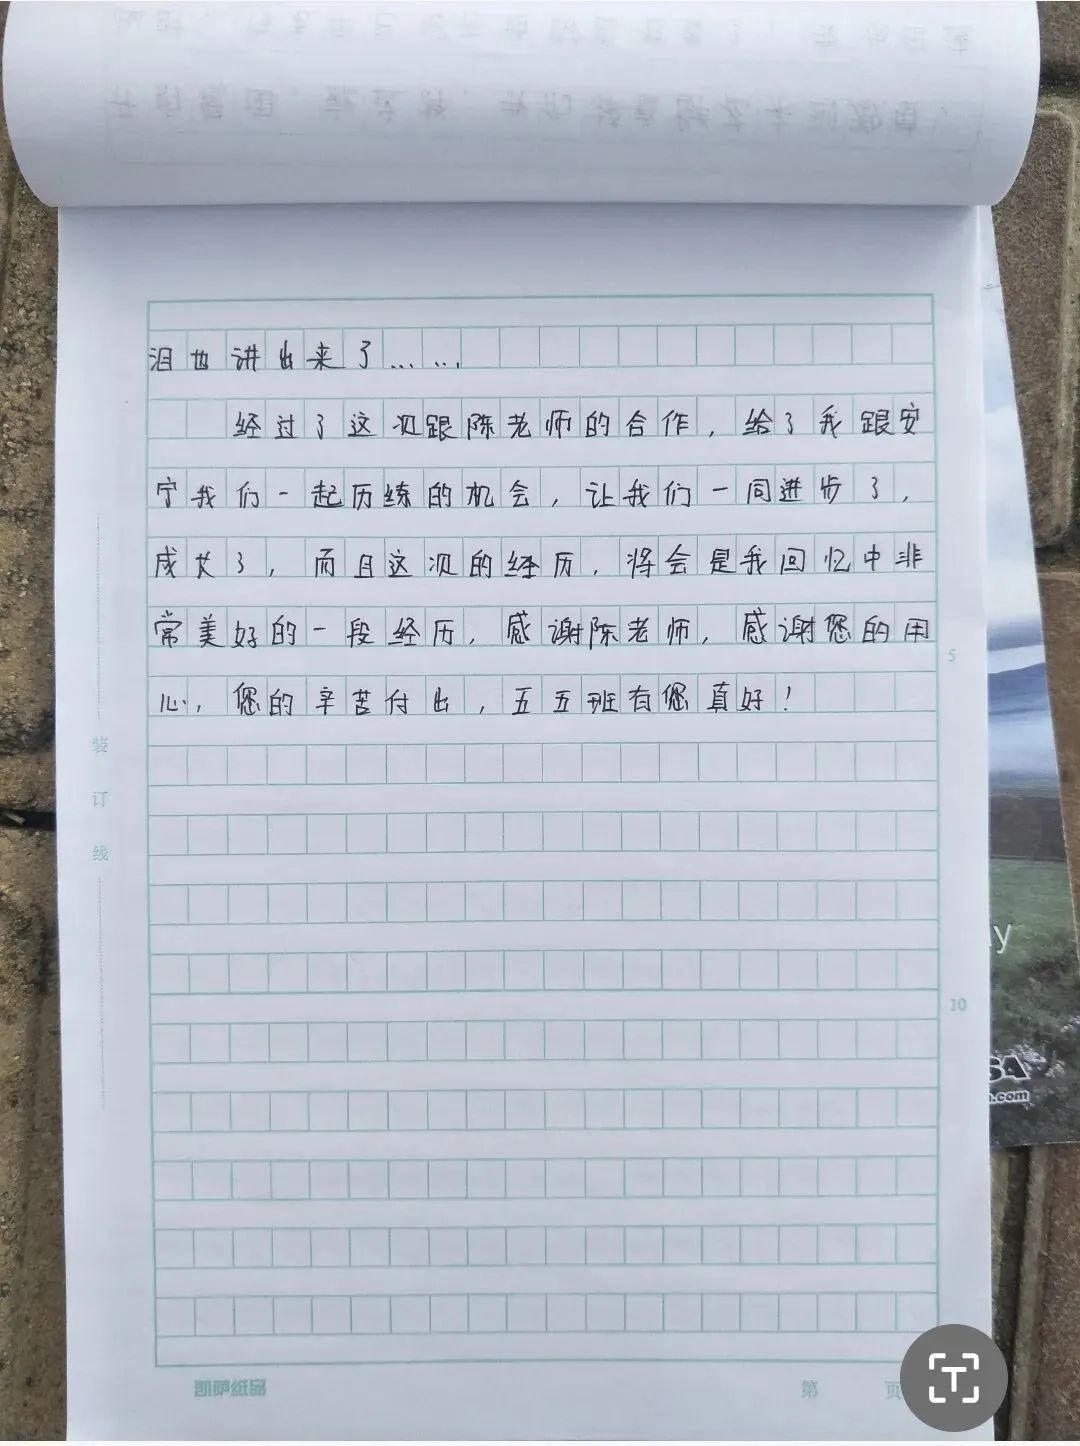 泪也讲出来了……
经过了这次跟陈老师的合作，给了我跟安
宁我们一起历练的机会，让我们一同进步了，
成长了，而且这次的经历，将会是我回忆中非
常美好的一段经历，感谢陈老师，感谢您的用
5
心，您的辛苦付出，五五班有您真好！
装
订
线
10
凯萨纸品
第 页